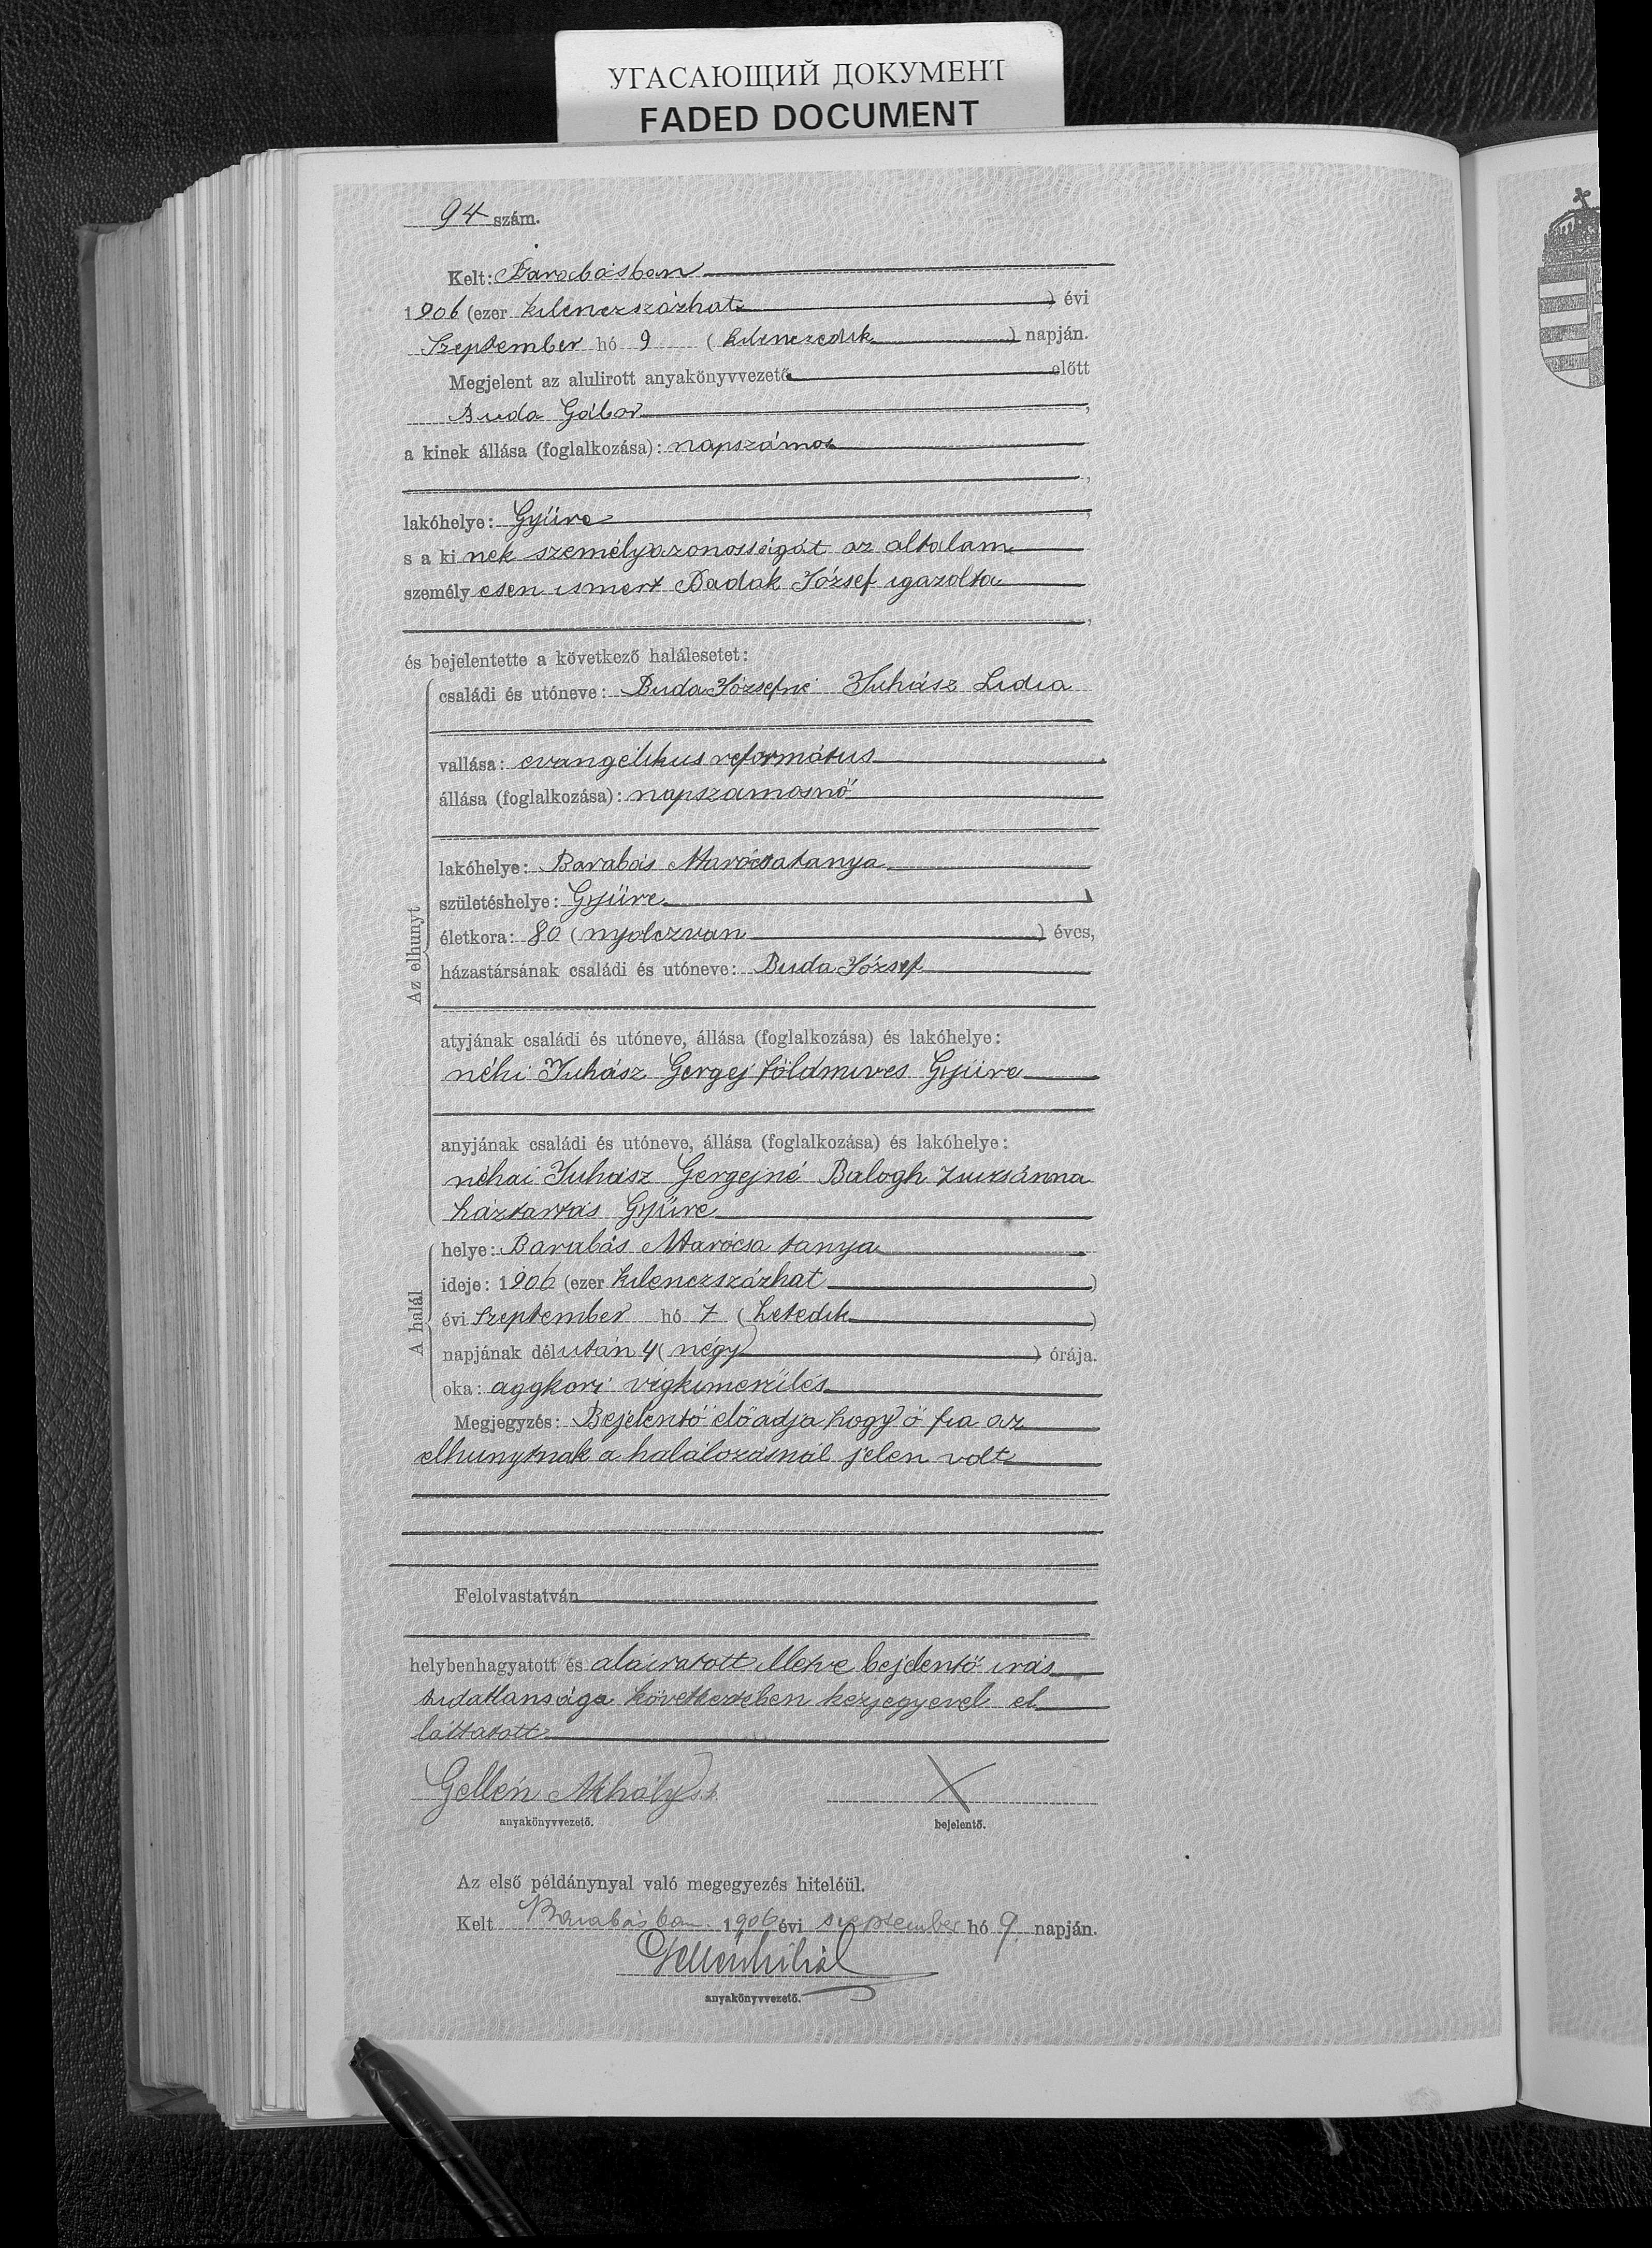 УГАСАЮЩИЙ ДОКУМЕНТ
FADED DOCUMENT
94 szám.
Kelt: Barabásban
1906 (ezer kilenczszázhat) évi
Szeptember hó 9 (kilenczedik) napján.
Megjelent az alulirott anyakönyvvezető előtt
Buda Gábor,
a kinek állása (foglalkozása): napszámos
,
lakóhelye: Gyüre,
s a ki nek személyazonosságát az altalam
személy esen ismert Badak József igazolta
,
és bejelentette a következő halálesetet:
Az elhunyt
családi és utóneve: Buda Józsefné Juhász Lidia
vallása: evangélikus református,
állása (foglalkozása): napszamosnő
lakóhelye: Barabás Marócsatanya
születéshelye: Gyüre,
életkora: 80 (nyolczvan) éves,
házastársának családi és utóneve: Buda József
atyjának családi és utóneve, állása (foglalkozása) és lakóhelye:
néhi Juhász Gergej földmives Gyüre
anyjának családi és utóneve, állása (foglalkozása) és lakóhelye:
néhai Juhász Gergejné Balogh Zsuzsánna
háztartás Gyüre
A halál
helye: Barabás Marócsa tanya
ideje: 1906 (ezer kilenczszázhat)
évi Szeptember hó 7 (hetedik)
napjának délután 4 (négy) órája.
oka: aggkori végkimerülés
Megjegyzés: Bejelentő előadja hogy ő fia az
elhunytnak a halálozásnál jelen volt
Felolvastatván
helybenhagyatott és aláiratott illetve bejelentő irás
tudatlansága következtében kézjegyevel el
láttatott
Gellén Mihály s.k. X
anyakönyvvezető. bejelentő.
Az első példánynyal való megegyezés hiteléül.
Kelt Barabásban 1906 évi szeptember hó 9. napján.
Gellén Mihál
anyakönyvvezető.